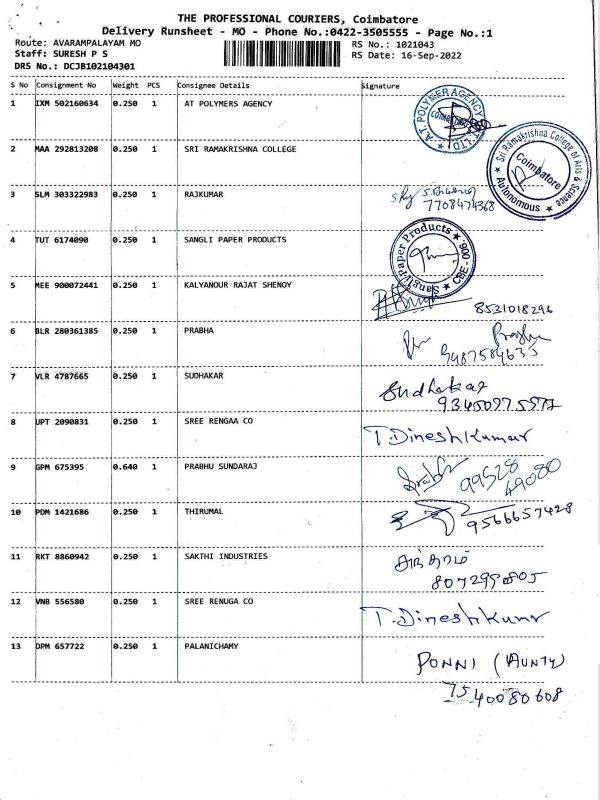 THE PROFESSIONAL COURIERS, Coimbatore
Delivery Runsheet - MO - Phone No.:0422-3505555 - Page No.:1
Route: AVARAMPALAYAM MO RS No.: 1021043
Staff: SURESH P S RS Date: 16-Sep-2022
DRS No.: DCJB102104301
S No Consignment No Weight PCS Consignee Details Signature
1 IXM 502160634 0.250 1 AT POLYMERS AGENCY
A.T POLYMER AGENCY
2 MAA 292813208 0.250 1 SRI RAMAKRISHNA COLLEGE
Sri Ramakrishna College of Arts & Science
Coimbatore
Autonomous
3 SLM 303322983 0.250 1 RAJKUMAR
7708474368
4 TUT 6174090 0.250 1 SANGLI PAPER PRODUCTS
Sangli Paper Products
5 MEE 900072441 0.250 1 KALYANOUR RAJAT SHENOY
8531018296
6 BLR 280361385 0.250 1 PRABHA
9487584635
7 VLR 4787665 0.250 1 SUDHAKAR
Sudhakar
8 UPT 2090831 0.250 1 SREE RENGAA CO
T.Dineshkumar
9 GPM 675395 0.640 1 PRABHU SUNDARAJ
99528
49080
10 PDM 1421686 0.250 1 THIRUMAL
9566657428
11 RKT 8860942 0.250 1 SAKTHI INDUSTRIES
12 VNB 556580 0.250 1 SREE RENUGA CO
T.Dineshkumr
13 DPM 657722 0.250 1 PALANICHAMY
PONNI (AUNTY)
7540080608